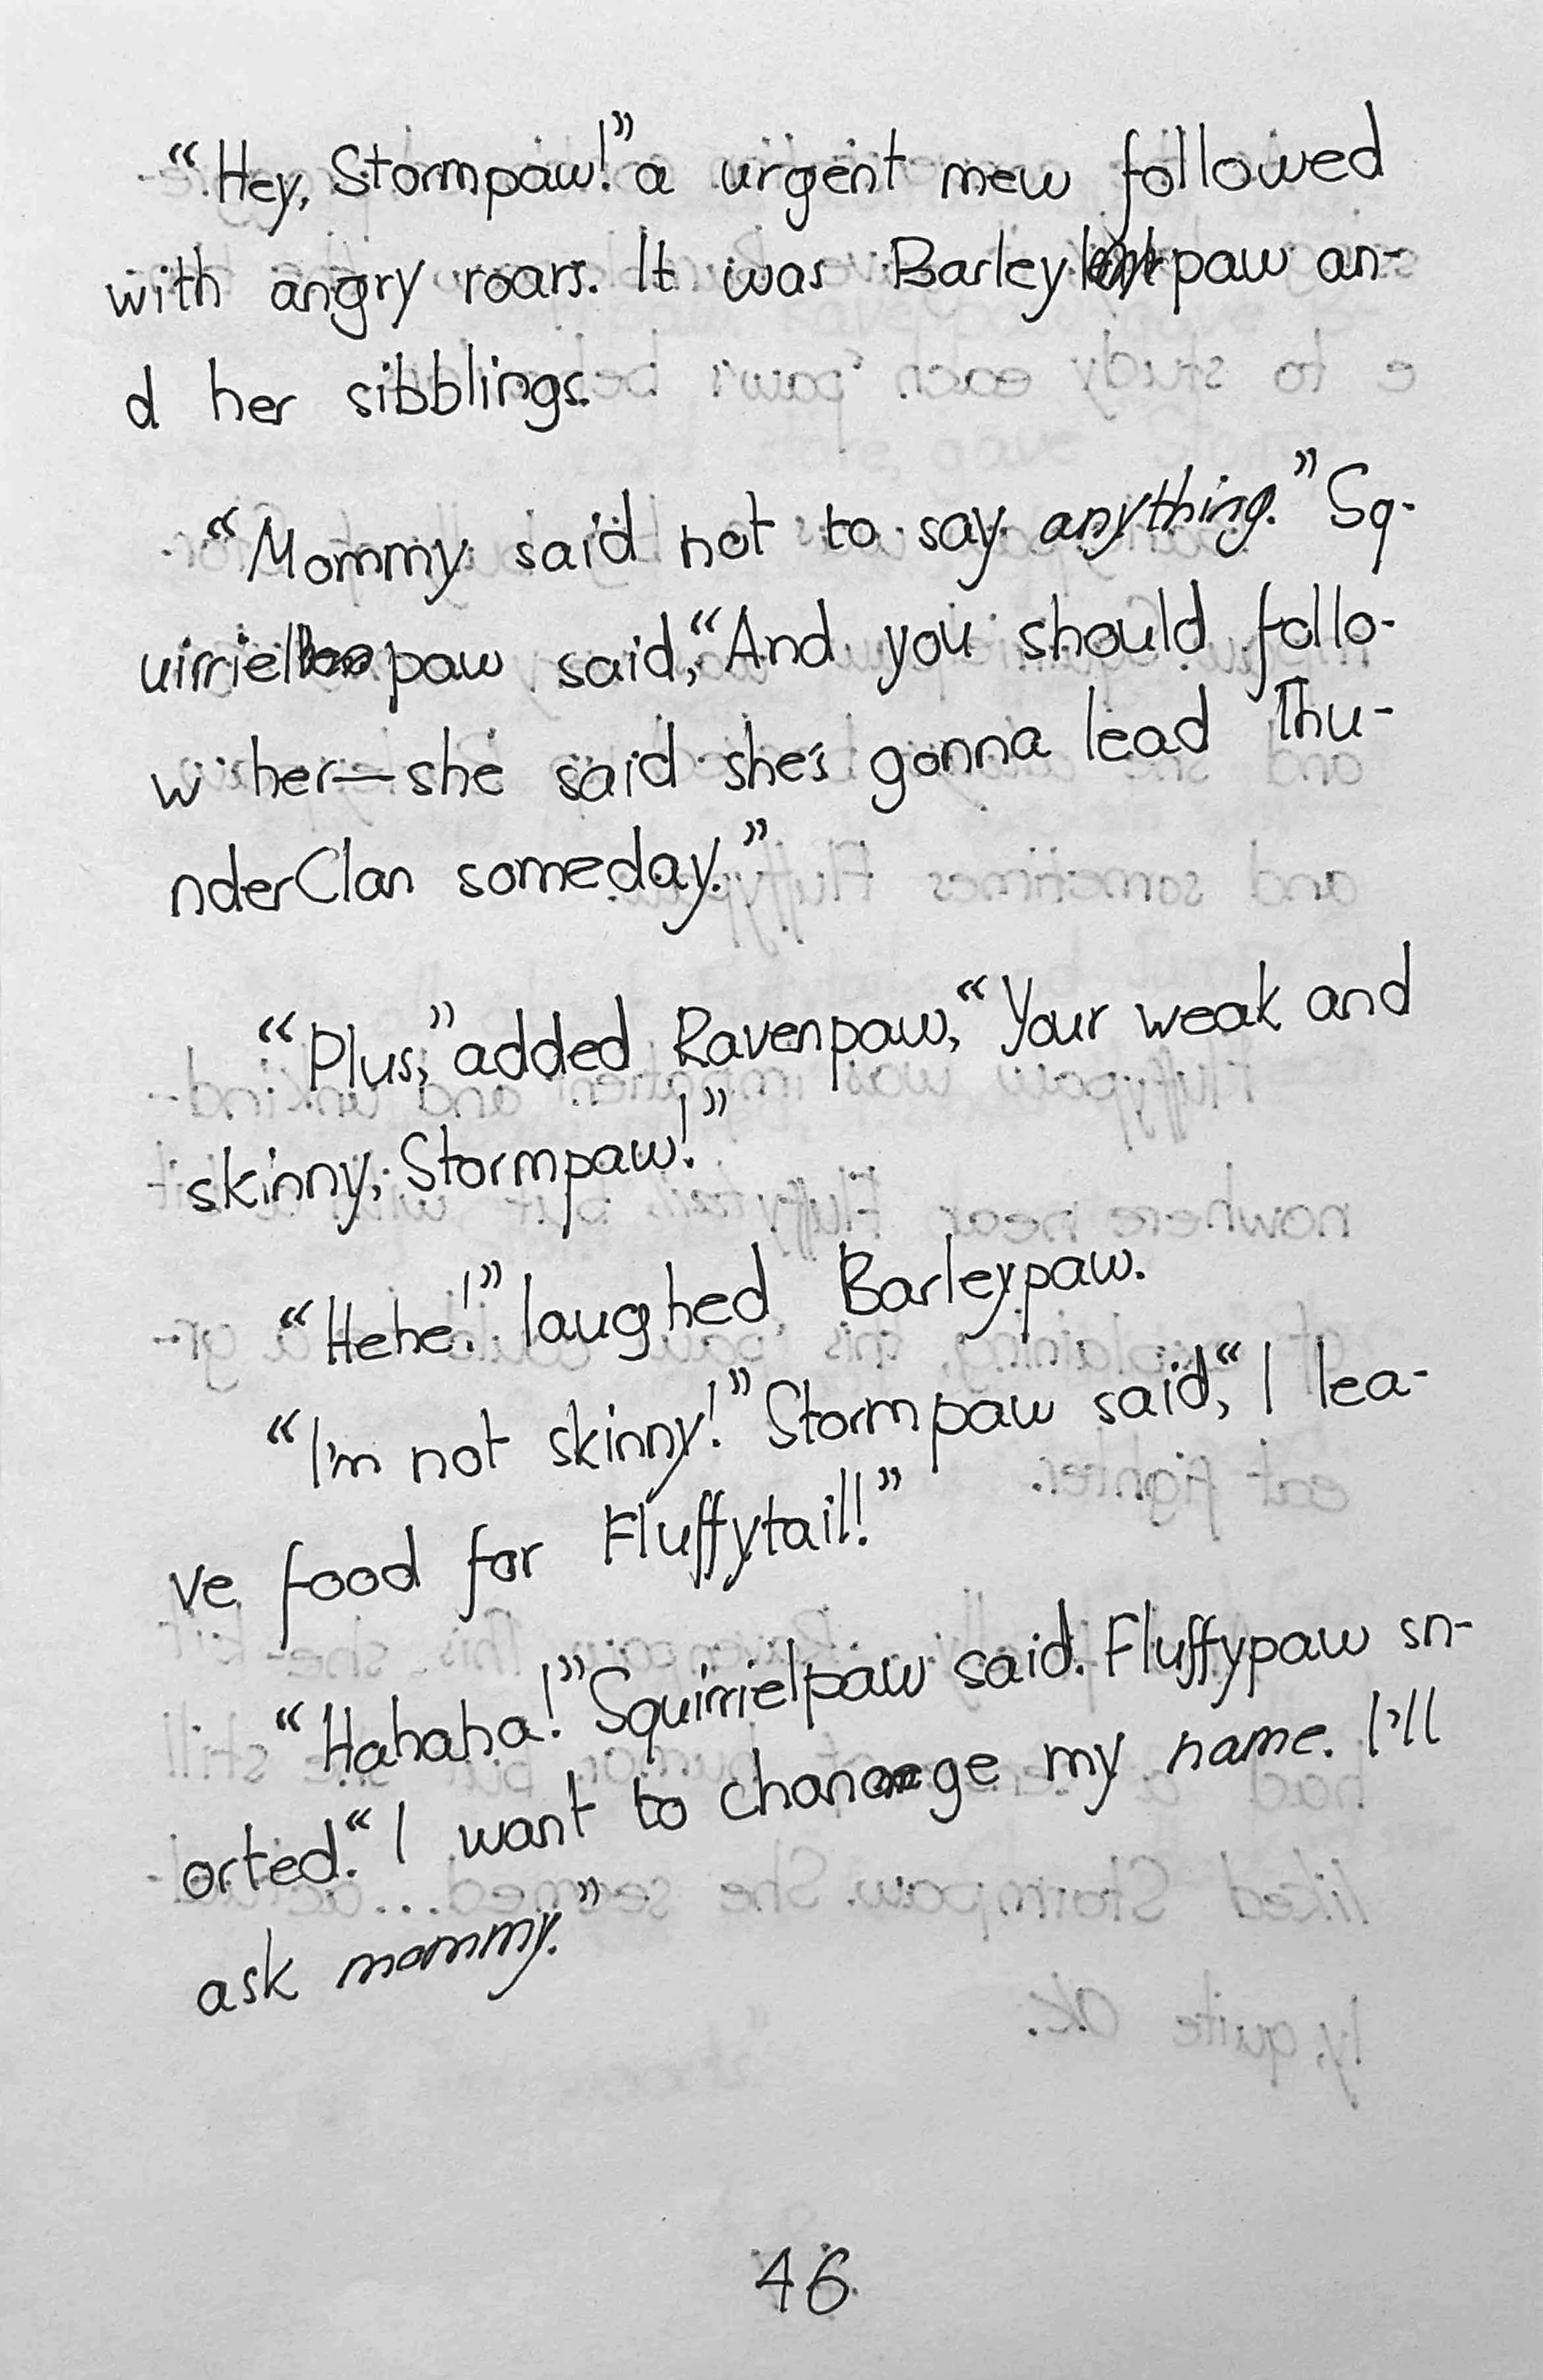 “Hey, Stormpaw!” a urgent mew followed
with angry roars. It was Barley paw an-
d her sibblings.
“Mommy said not to say anything.” Sq-
uirriel paw said, “And you should follo-
w her—she said she's gonna lead Thu-
nderClan someday.”
“Plus,” added Ravenpaw, “Your weak and
skinny, Stormpaw!”
“Hehe!” laughed Barleypaw.
“I'm not skinny!” Stormpaw said, “I lea-
ve food for Fluffytail!”
“Hahaha!” Squirrielpaw said. Fluffypaw sn-
orted. “I want to change my name. I'll
ask mommy.”
46